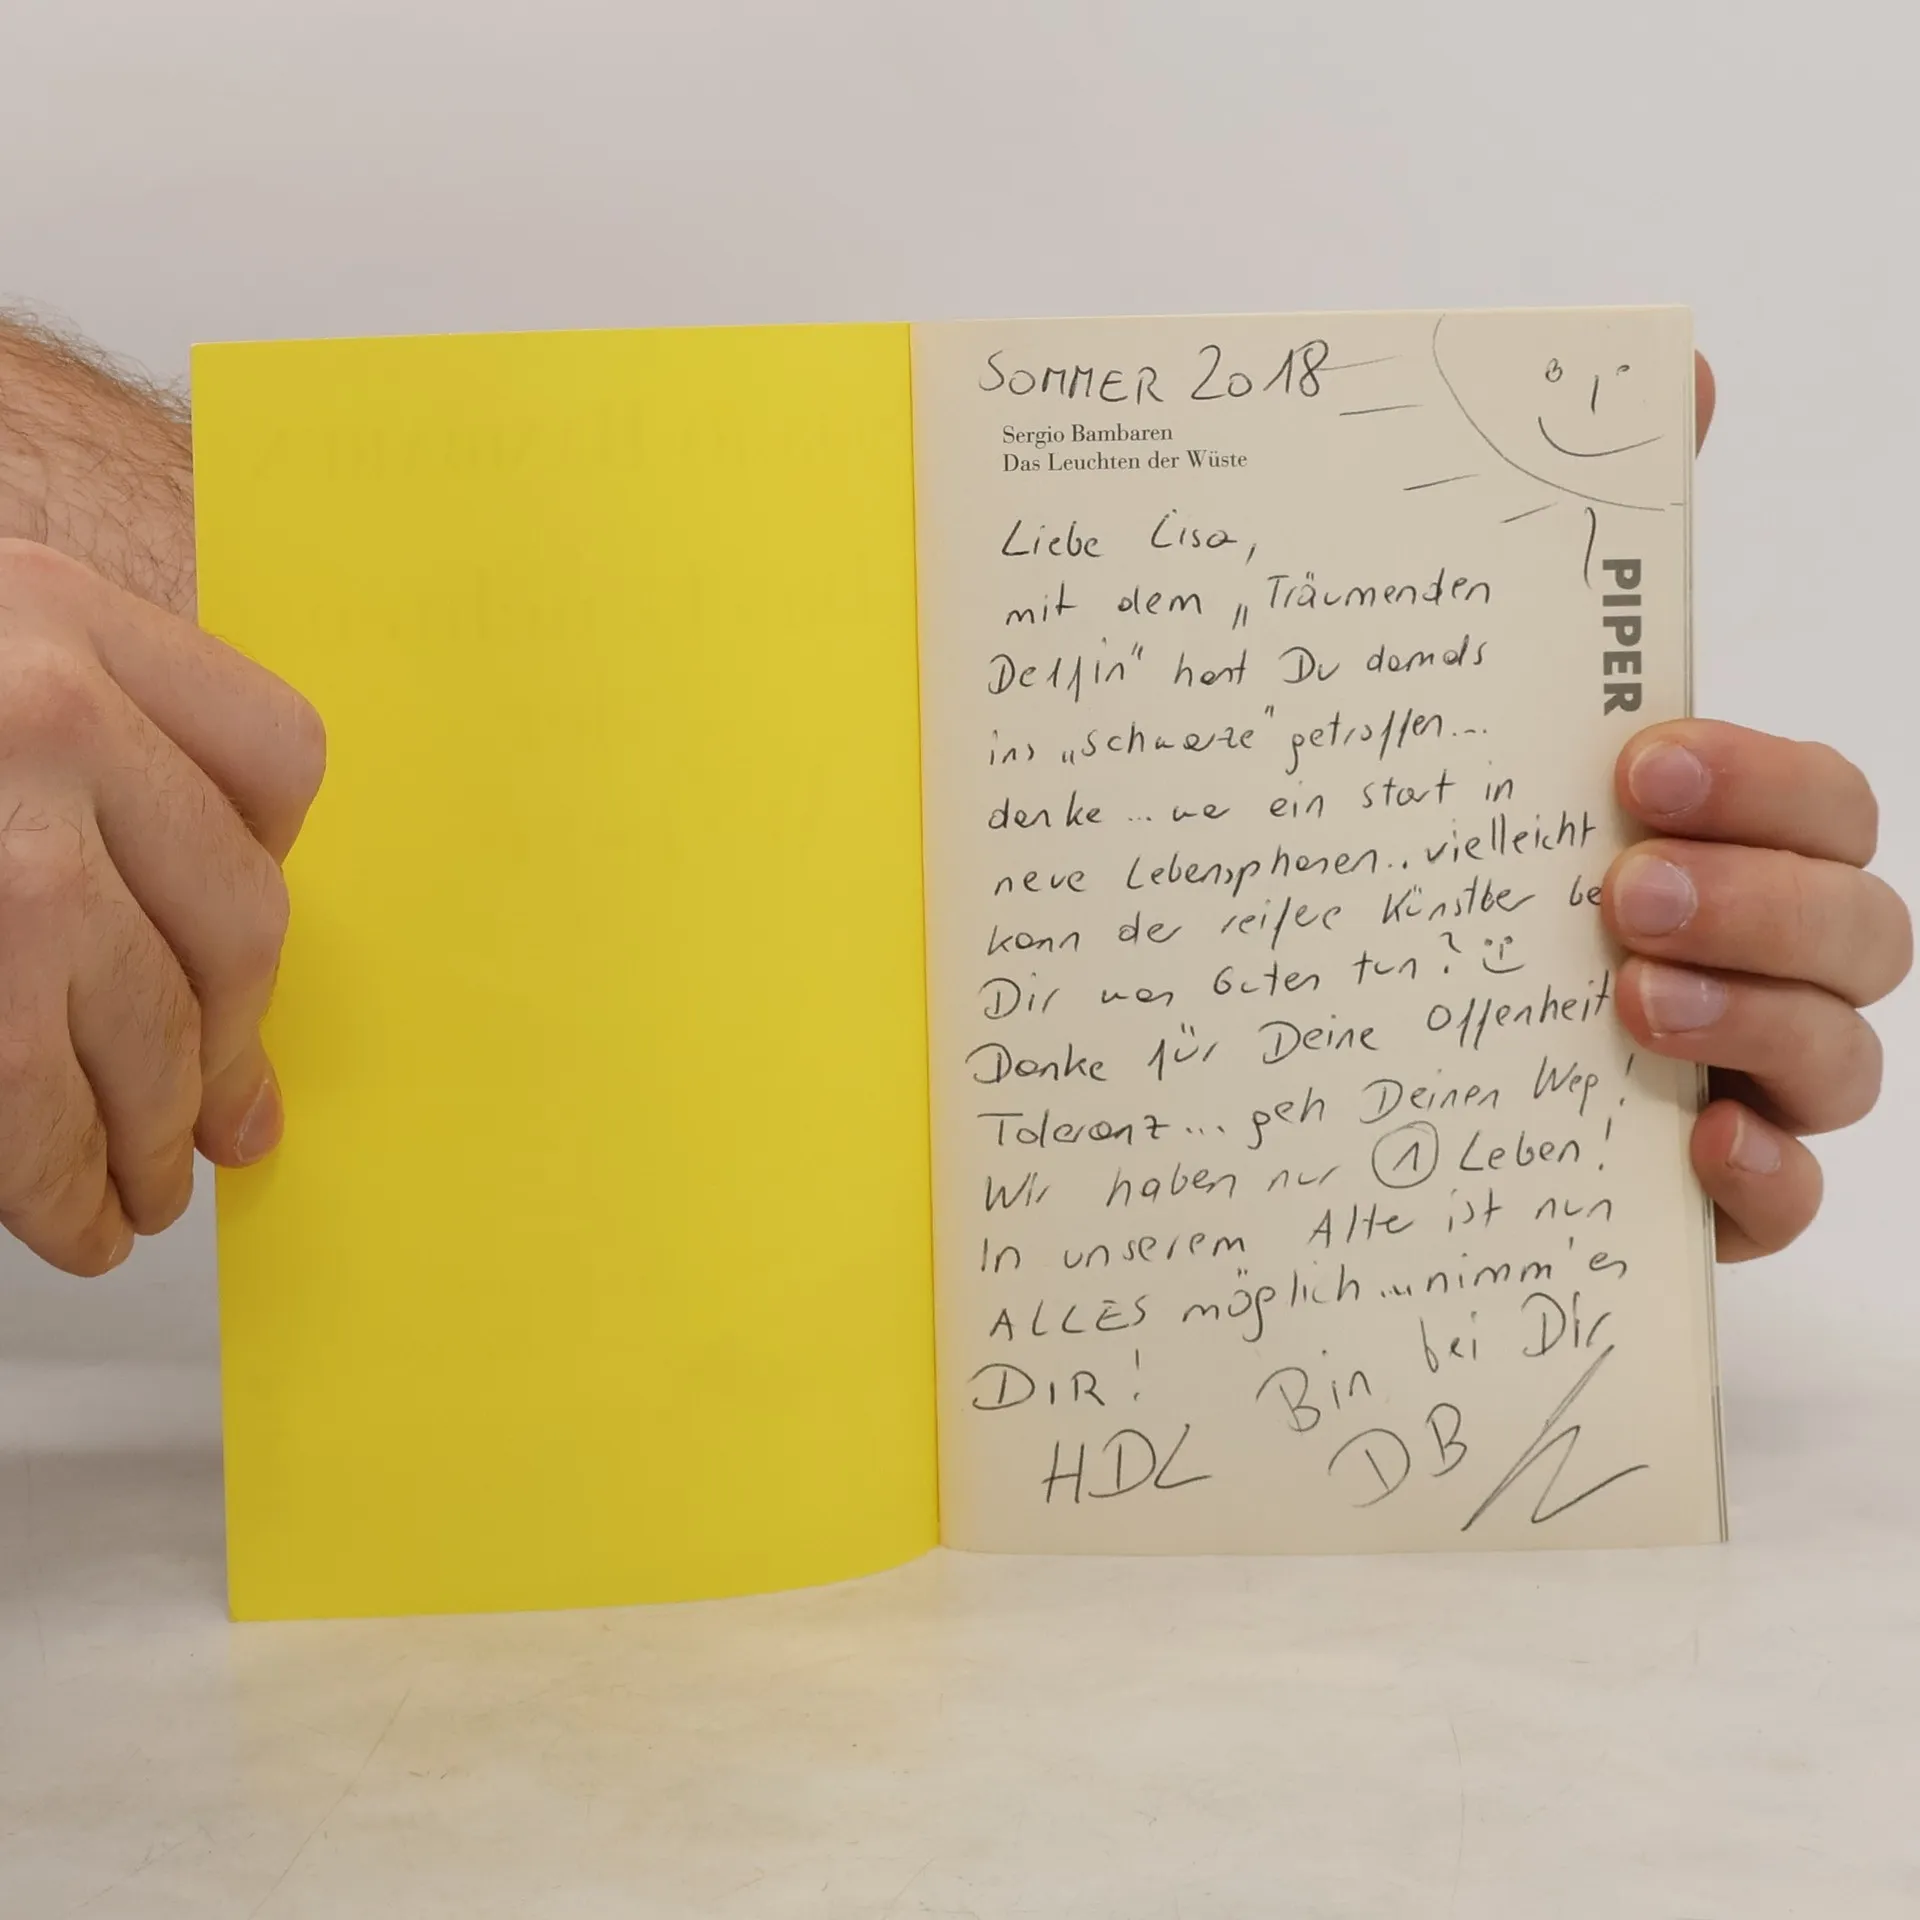 SOMMER 2018
Sergio Bambaren
Das Leuchten der Wüste
PIPER
Liebe Lisa,
mit dem „Träumenden
Delfin" hast Du damals
ins „schwarze" getroffen...
danke ... war ein start in
neue Lebensphasen.. vielleicht
kann der reifere Künstler be
Dir was Guten tun?
Danke für Deine Offenheit
Toleranz... geh Deinen Weg!
Wir haben nur 1 Leben!
In unserem Alte ist nun
ALLES möglich ... nimm' es
DIR! Bin bei Dir
HDL DB